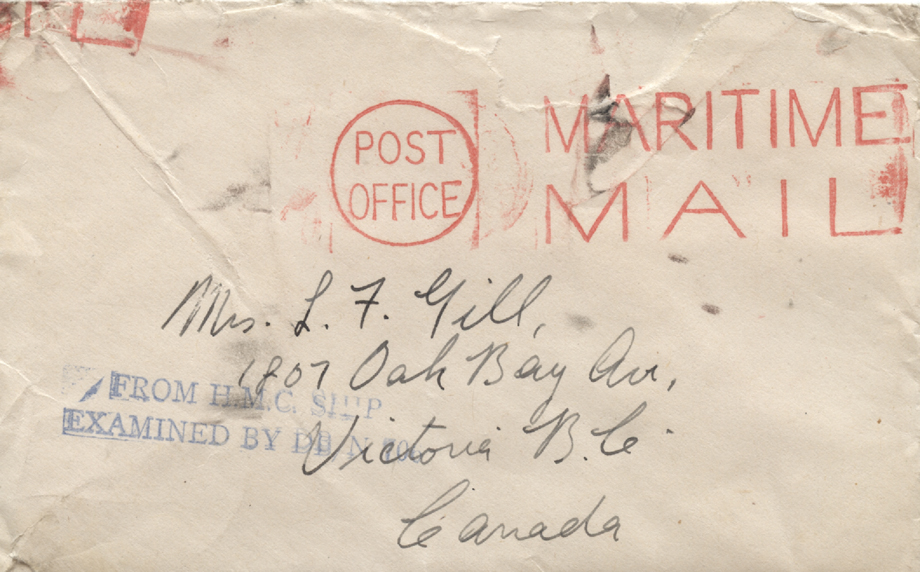 POST
OFFICE
MARITIME
MAIL
Mrs. L. F. Gill,
1807 Oak Bay Av.,
Victoria B.C.
Canada
FROM H.M.C. SHIP
EXAMINED BY DB/N